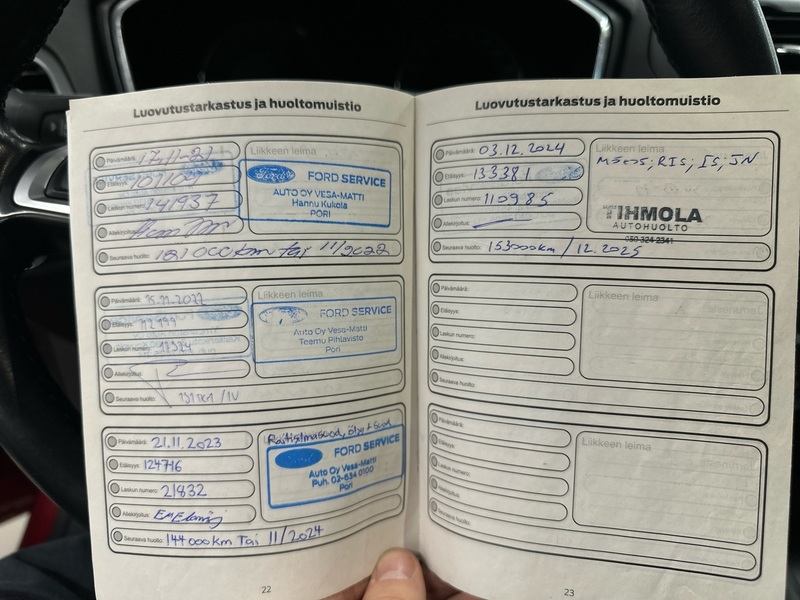 Luovutustarkastus ja huoltomuistio
Päivämäärä: 17.11-21
Etäisyys:
Laskun numero: 141937
Allekirjoitus:
Seuraava huolto: 121 000km tai 11/2022
Liikkeen leima
FORD SERVICE
AUTO OY VESA-MATTI
Hannu Kukola
PORI
Päivämäärä: 15.11.2022
Etäisyys: 112199
Laskun numero: 17324
Allekirjoitus:
Seuraava huolto:
Liikkeen leima
FORD SERVICE
Auto Oy Vesa-Matti
Teemu Pihlavisto
Pori
Päivämäärä: 21.11.2023
Etäisyys: 124716
Laskun numero: 21832
Allekirjoitus:
Seuraava huolto: 144 000km Tai 11/2024
Raitisilmasuod, öljy + suod
FORD SERVICE
Auto Oy Vesa-Matti
Puh. 02-634 0100
Pori
22
Luovutustarkastus ja huoltomuistio
Päivämäärä: 03.12.2024
Etäisyys: 133381
Laskun numero: 110985
Allekirjoitus:
Seuraava huolto: 153000km / 12.2025
Liikkeen leima
MSöös; RIS; IS; JN
IHMOLA
AUTOHUOLTO
050 324 2341
Päivämäärä:
Etäisyys:
Laskun numero:
Allekirjoitus:
Seuraava huolto:
Liikkeen leima
Päivämäärä:
Etäisyys:
Laskun numero:
Allekirjoitus:
Seuraava huolto:
Liikkeen leima
23